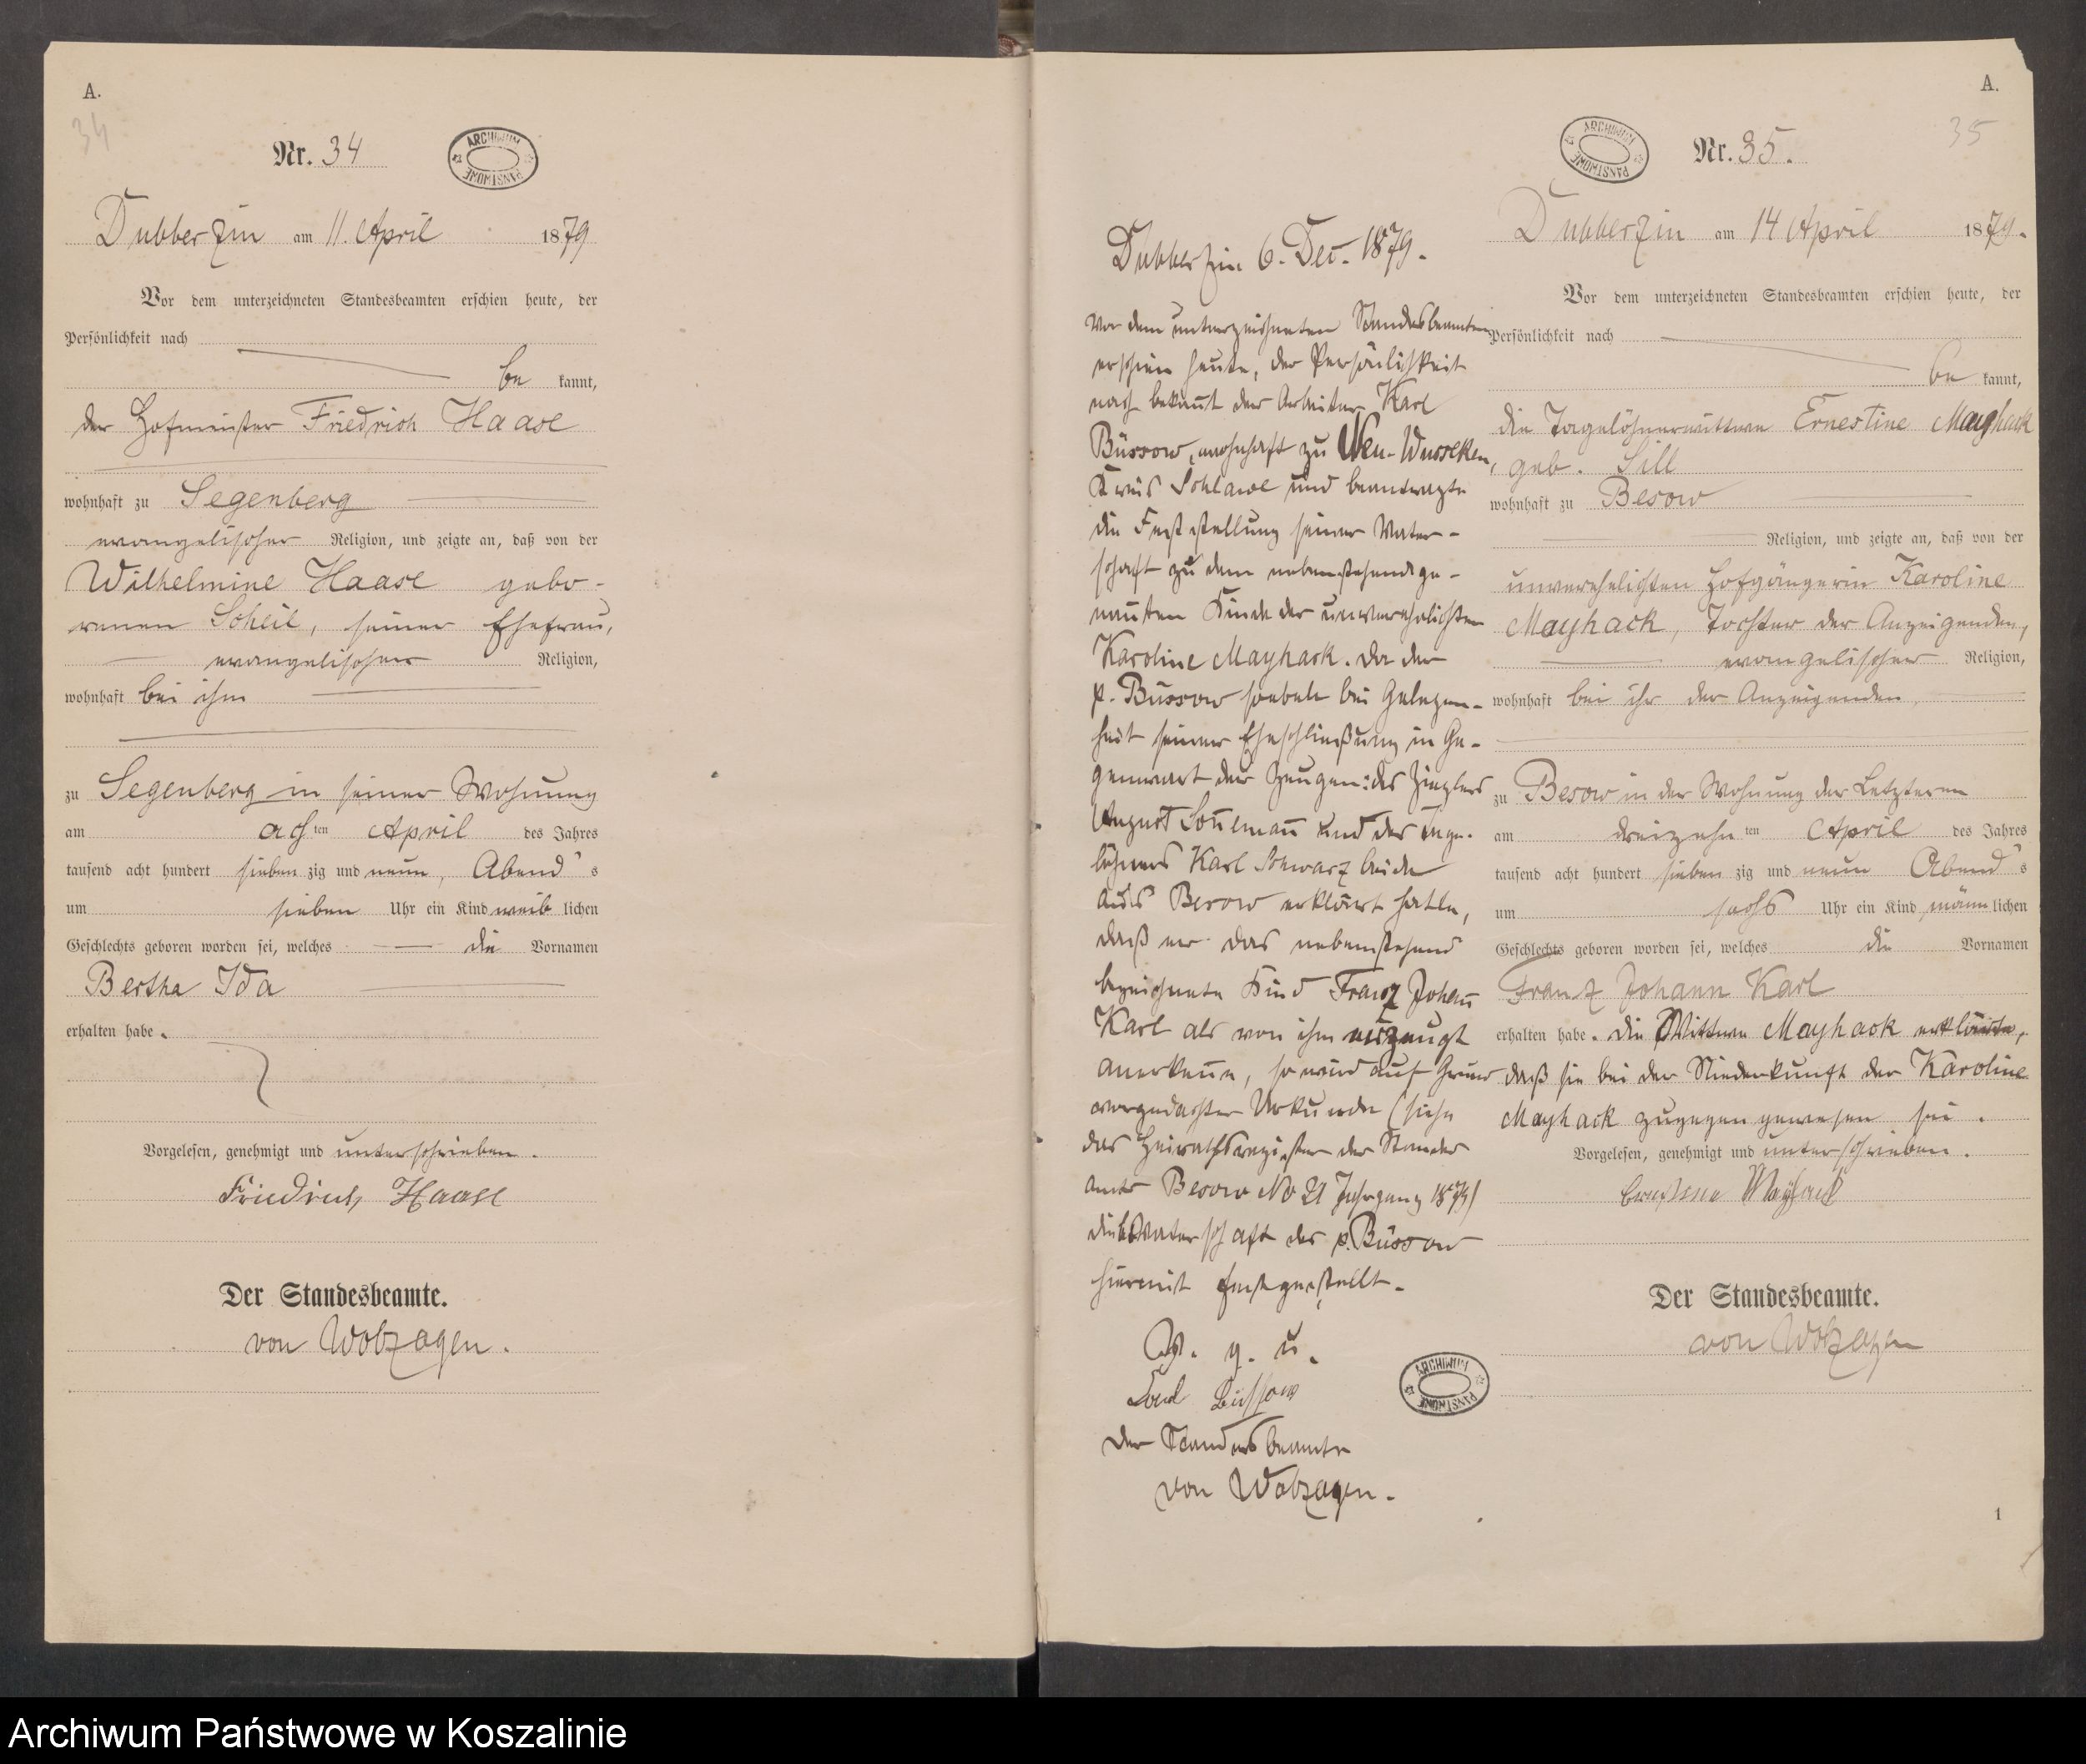 A.
34
Nr. 34
ARCHIWUM PAŃSTWOWE
Dubberzin am 11. April 1879
Vor dem unterzeichneten Standesbeamten erschien heute, der
Persönlichkeit nach
be kannt,
der Hofmeister Friedrich Haase
wohnhaft zu Segenberg
evangelischer Religion, und zeigte an, daß von der
Wilhelmine Haase gebo-
renen Scheil, seiner Ehefrau,
evangelischer Religion,
wohnhaft bei ihm
zu Segenberg in seiner Wohnung
am achten April des Jahres
tausend acht hundert sieben zig und neun, Abend's
um sieben Uhr ein Kind weib lichen
Geschlechts geboren worden sei, welches die Vornamen
Bertha Ida
erhalten habe.
Vorgelesen, genehmigt und unterschrieben.
Friedrich Haase
Der Standesbeamte.
von Wobzagen.
Dubberzin 6. Dec. 1879.
Vor dem unterzeichneten Standesbeamten
erschien heute, der Persönlichkeit
nach bekannt der Arbeiter Karl
Büssow, wohnhaft zu Neu-Wusseken,
Kreis Schlawe und beantragte
die Feststellung seiner Vater-
schaft zu dem nebenstehend ge-
nannten Kinde der unverehelichten
Karoline Mayhack. Da der
p. Büssow soeben bei Gelegen-
heit seiner Eheschließung in Ge-
genwart der Zeugen: des Zieglers
August und des Tage-
löhners Karl Schwarz beide
aus Besow erklärt hatte,
daß er das nebenstehend
bezeichnete Kind Franz Johann
Karl als von ihm erzeugt
anerkenne, so wird auf Grund
vorgedachter Urkunde (siehe
das Heirathsregister des Standes
amts Besow No 21 Jahrgang 1879)
die Vaterschaft des p. Büssow
hiermit festgestellt.
V. g. u.
Karl Büssow
Der Standesbeamte
von Wobzagen.
ARCHIWUM PAŃSTWOWE
A.
35
ARCHIWUM PAŃSTWOWE
Nr. 35.
Dubberzin am 14 April 1879.
Vor dem unterzeichneten Standesbeamten erschien heute, der
Persönlichkeit nach
be kannt,
die Tagelöhnerwittwe Ernestine Mayhack
geb. Sill
wohnhaft zu Besow
Religion, und zeigte an, daß von der
unverehelichten Hofgängerin Karoline
Mayhack, Tochter der Anzeigenden,
evangelischer Religion,
wohnhaft bei ihr der Anzeigenden
zu Besow in der Wohnung der Letzteren
am dreizehnten April des Jahres
tausend acht hundert sieben zig und neun Abend's
um sechs Uhr ein Kind männ lichen
Geschlechts geboren worden sei, welches die Vornamen
Franz Johann Karl
erhalten habe. Die Wittwe Mayhack erklärte,
daß sie bei der Niederkunft der Karoline
Mayhack zugegen gewesen sei.
Vorgelesen, genehmigt und unterschrieben.
Ernestine Mayhack
Der Standesbeamte.
von Wobzagen
1
Archiwum Państwowe w Koszalinie